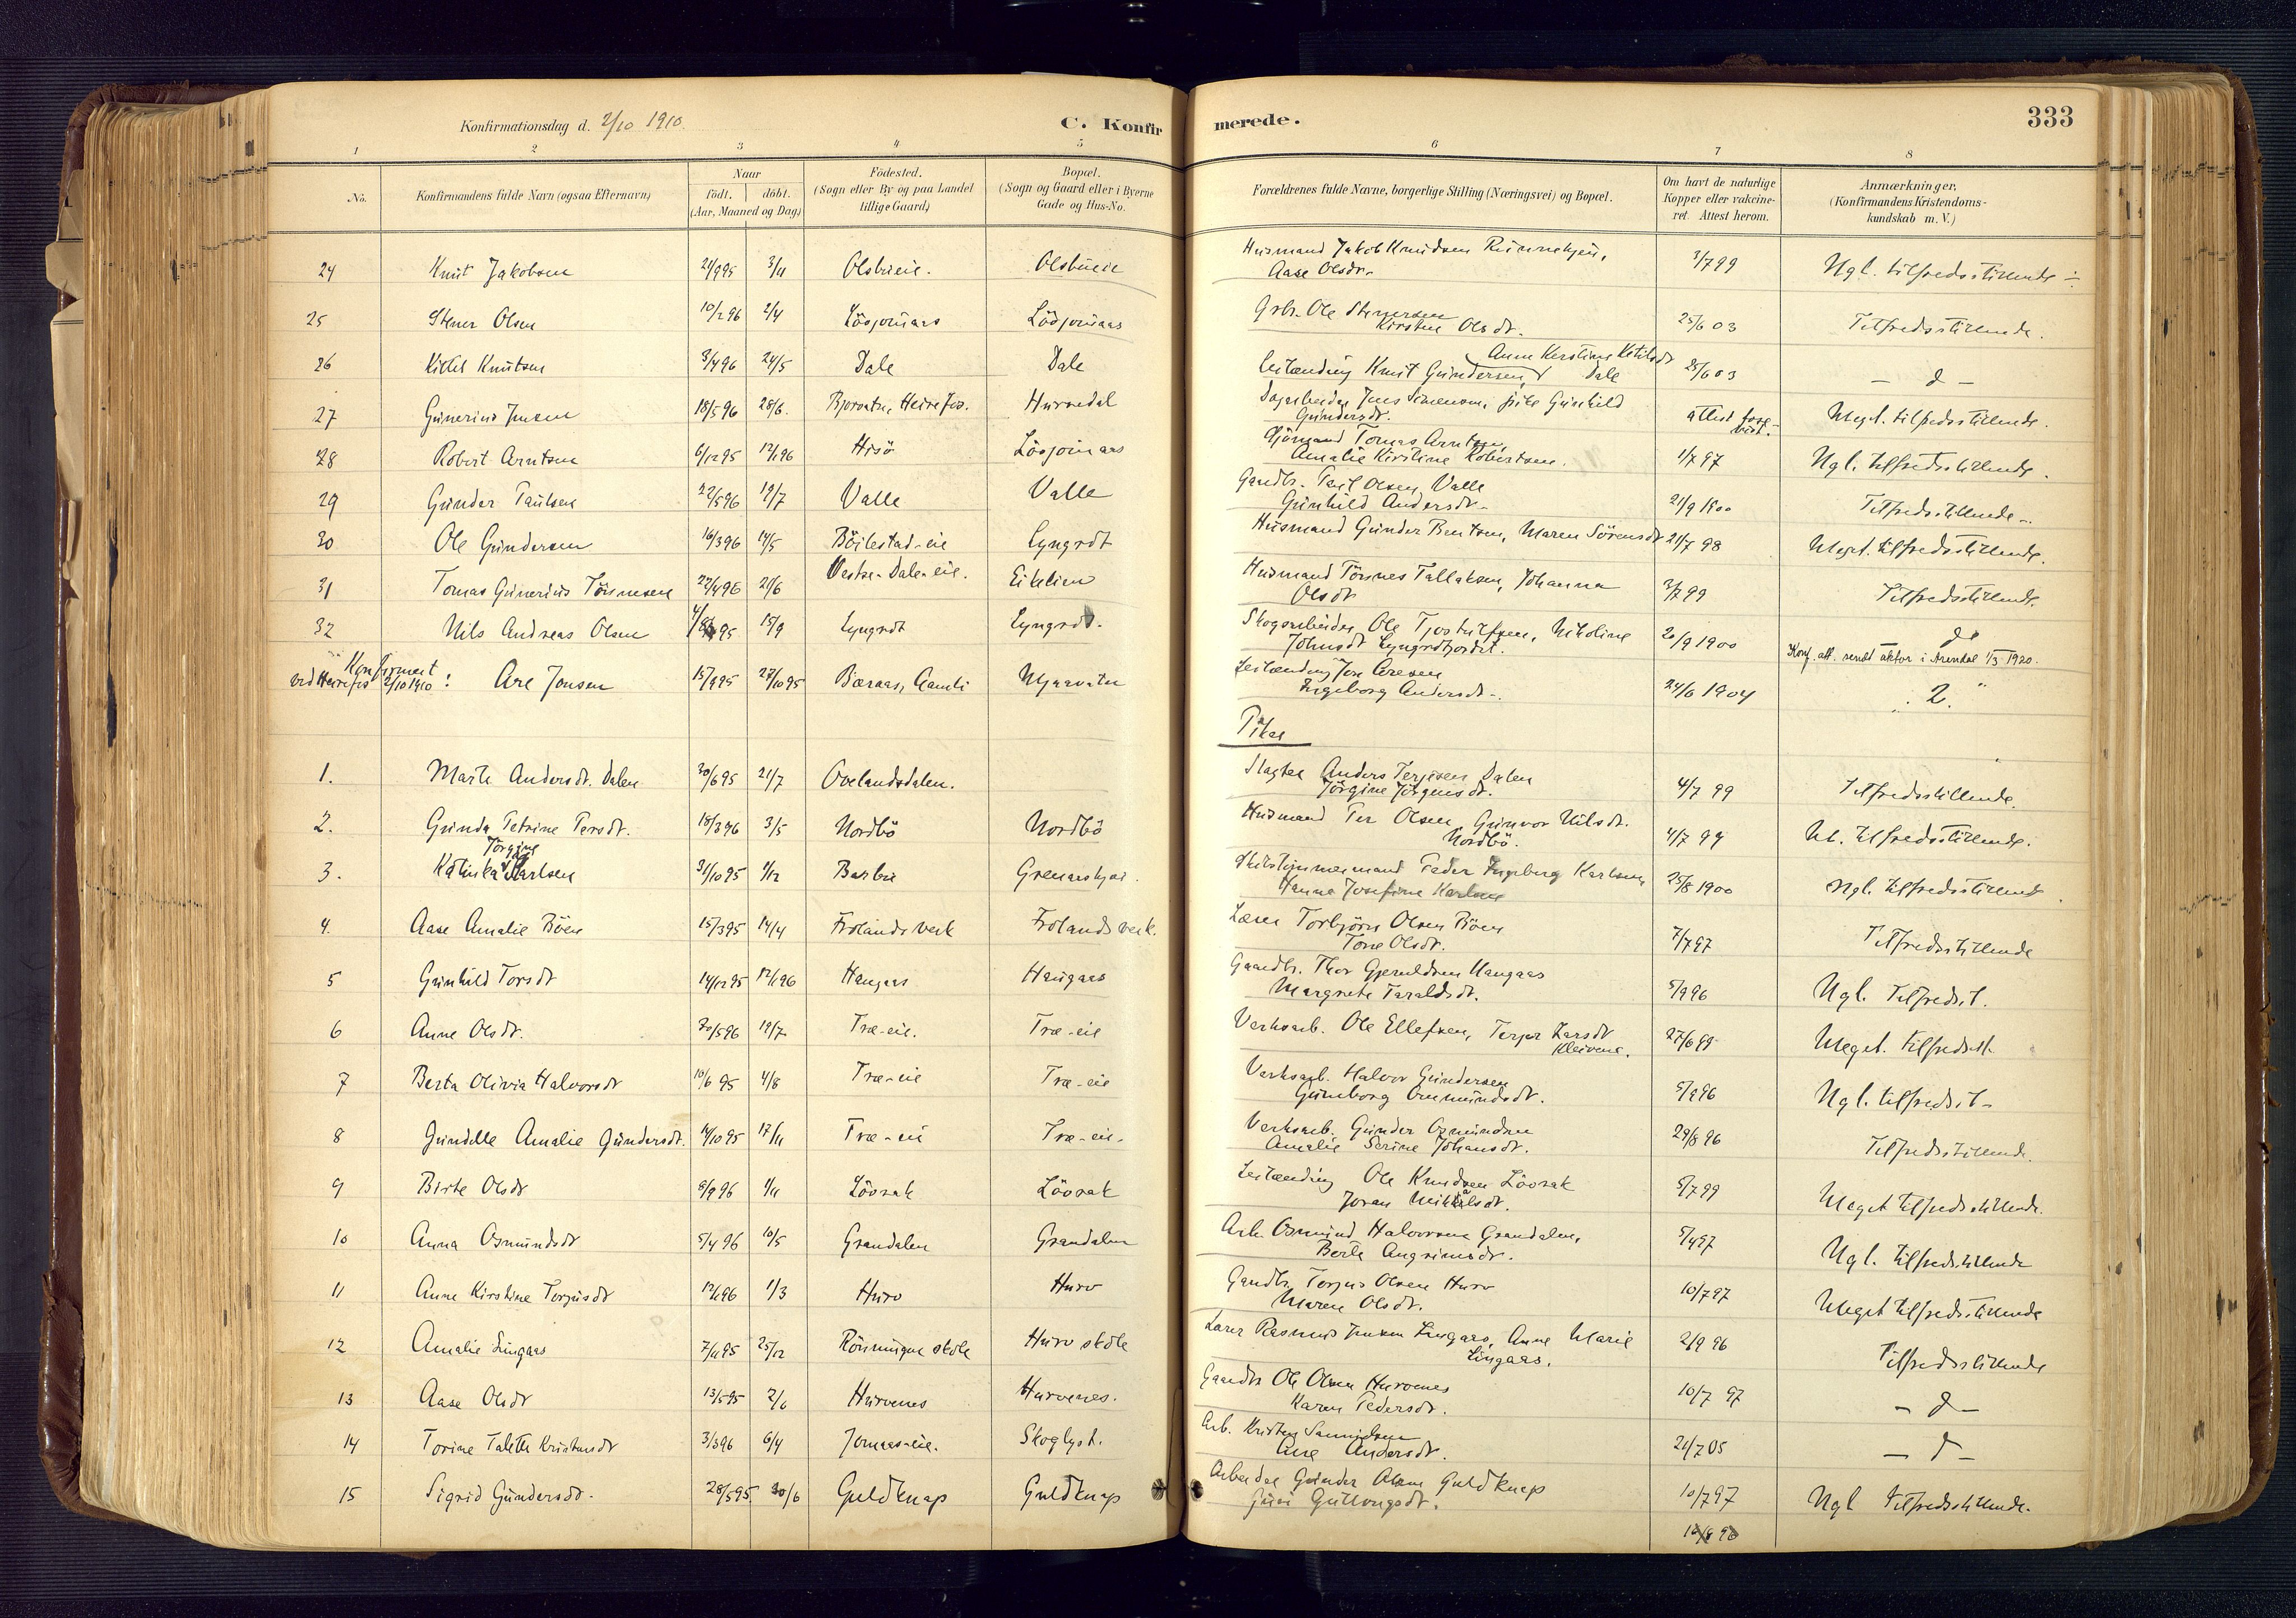 Konfirmationsdag d. 2/10 1910.
C. Konfirmerede.
333
1 2 3 4 5 6 7 8
No.
Konfirmandens fulde Navn (ogsaa Efternavn)
Naar
födt. döbt.
(Aar, Maaned og Dag)
Födested.
(Sogn eller By og paa Landet
tillige Gaard)
Bopæl.
(Sogn og Gaard eller i Byerne
Gade og Hus-No.
Forældrenes fulde Navne, borgerlige Stilling (Næringsvei) og Bopæl.
Om havt de naturlige
Kopper eller vakcine-
ret. Attest herom.
Anmærkninger.
(Konfirmandens Kristendoms-
kundskab m. V.)
24 Knut Jakobsen 3/11 Olsbueie. Olsbueie Husmand Jakob Knudsen
Aase Olsdr. 3/7 99 Ngl. tilfredsstillende
25 Stener Olsen 10/2 96 2/4 Gbr. Ole Stenersen
Kirstine Olsdr. 25/6 03 Tilfredsstillende.
26 Kittel Knutsen 3/4 96 24/5 Dale Dale Anne Kirstine Ketilsdr
Leilænding Knut Gundersen, Dale 25/6 03 - d -
27 Gunerius Jensen 18/5 96 28/6. Heirefos. Hurvedal Jens Simensen, pike Gunhild
Gundersdr. attest fore-
vist. Meget tilfredsstillende.
28 Robert Arntsen 6/12 95 12/1 96 Hisö Sjömand Tomas Arntsen
Amalie Kirstine Robertsen. 1/7 97 Ngl. tilfredsstillende.
29 Gunder Paulsen 22/5 96 19/7 Valle Valle Gaardbr. Paul Olsen Valle
Gunhild Andersdr. 21/9 1900 Tilfredsstillende.
30 Ole Gundersen 16/3 96 14/5 Böilestad-eie Lyngrdt Husmand Gunder Bentsen, Maren Sörensdr 21/7 98 Meget tilfredsstillende.
31 Tomas Gunerius Tönnesen 22/4 96 21/6 Vestre-Dale-eie. Eiklien Husmand Tönnes Tallaksen, Johanna
Olsdr 3/7 99 Tilfredsstillende.
32 Nils Andreas Olsen 15/9 Lyngrdt Lyngrdt. Skogsarbeider Ole Tjostulfsen, Nikoline
Johnsdr Lyngrdt 20/9 1900 do
Konf. att. sendt aktor i Arendal 1/3 1920.
Konfirmert
ved Heirefos 2/10 1910: Are Jonsen 15/9 95 27/10 95 Bæraas, Gamli Mjaavatn Leilænding Jon Aresen
Ingeborg Andersdr. 24/6 1904 2.
Piker
1. Marte Andersdr. Dalen 30/6 95 21/7 Ovelandsdalen. Slagter Anders Terjesen Dalen
Jörgine Jörgensdr. 4/7 99 Tilfredsstillende.
2. Gunda Petrine Persdr. 18/3 96 3/5 Nordbö Nordbö Husmand Per Olsen, Gunvor Nilsdr.
Nordbö. 4/7 99 M. tilfredsstillende.
3. Jörgine
Katinka Karlsen 31/10 95 1/12 Barbu Skibstömmermand Peder Ingeberg Karlsen,
Hanna Josefine Karlsen 25/8 1900 Ngl. tilfredsstillende.
4. Aase Amalie Böen 15/3 95 14/4 Frolands verk Frolands verk. Lærer Torbjörn Olsen Böen
Tone Olsdr. 7/7 97 Tilfredsstillende
5 Gunhild Torsdr 14/12 95 12/1 96 Haugaas Haugaas Gaardbr. Thor Gjeruldsen Haugaas
Margrete Taraldsdr. 5/9 96 Ngl. Tilfredsst.
6 Anne Olsdr. 30/5 96 19/7 Træ-eie. Træ-eie Verksarb. Ole Ellefsen, Terjer Larsdr
Kleivene. 27/6 99 Meget. tilfredsst.
7 Berta Olivia Halvorsdr 10/6 95 4/8 Træ-eie Træ-eie Verksarb. Halvor Gundersen
Gunborg Omundsdr. 5/9 96 Ngl. tilfredsst-
8 Gundelle Amalie Gundersdr. 14/10 95 17/11 Træ-eie Træ-eie. Verksarb. Gunder Osmundsen
Amalie Serine Johansdr. 29/8 96 Tilfredsstillende.
9 Birte Olsdr 8/9 96 1/11 Lövrak Lövrak Leilænding Ole Knudsen Lövrak
Joran Mikkalsdr. 5/7 99 Meget tilfredsstillende.
10 Anna Osmundsdr 5/4 96 10/5 Grandalen Grandalen Arb. Osmund Halvorsen Grandalen,
Berte Angrimsdr. Ngl. tilfredsstillende
11 Anne Kirstine Torjusdr 12/1 96 1/3 Hurv Hurv Gaardbr. Torjus Olsen Hurv
Maren Olsdr. 10/7 97 Meget tilfredsstillende
12 Amalie Lingaas 7/11 95 25/12 skole Hurv skole Lærer Rasmus Jensen Lingaas, Anne Marie
Lingaas. 2/9 96 Tilfredsstillende
13 Aase Olsdr 13/5 95 2/6 Hurvenes Hurvenes. Gaardbr Ole Olsen Hurvenes
Karen Pedersdr. 10/7 97 - d -
14 Torine Talette Kristensdr 3/3 96 6/4 Jomaas-eie. Skoglyst. Arb. Kristen Samuelsen
Ane Andersdr. 21/7 05 - d -
15 Sigrid Gundersdr. 28/5 95. 30/6 Guldknap Guldknap Arbeider Gunder Olsen Guldknap
Guri Gullougsdr. 10/7 97 Ngl tilfredsstillende.